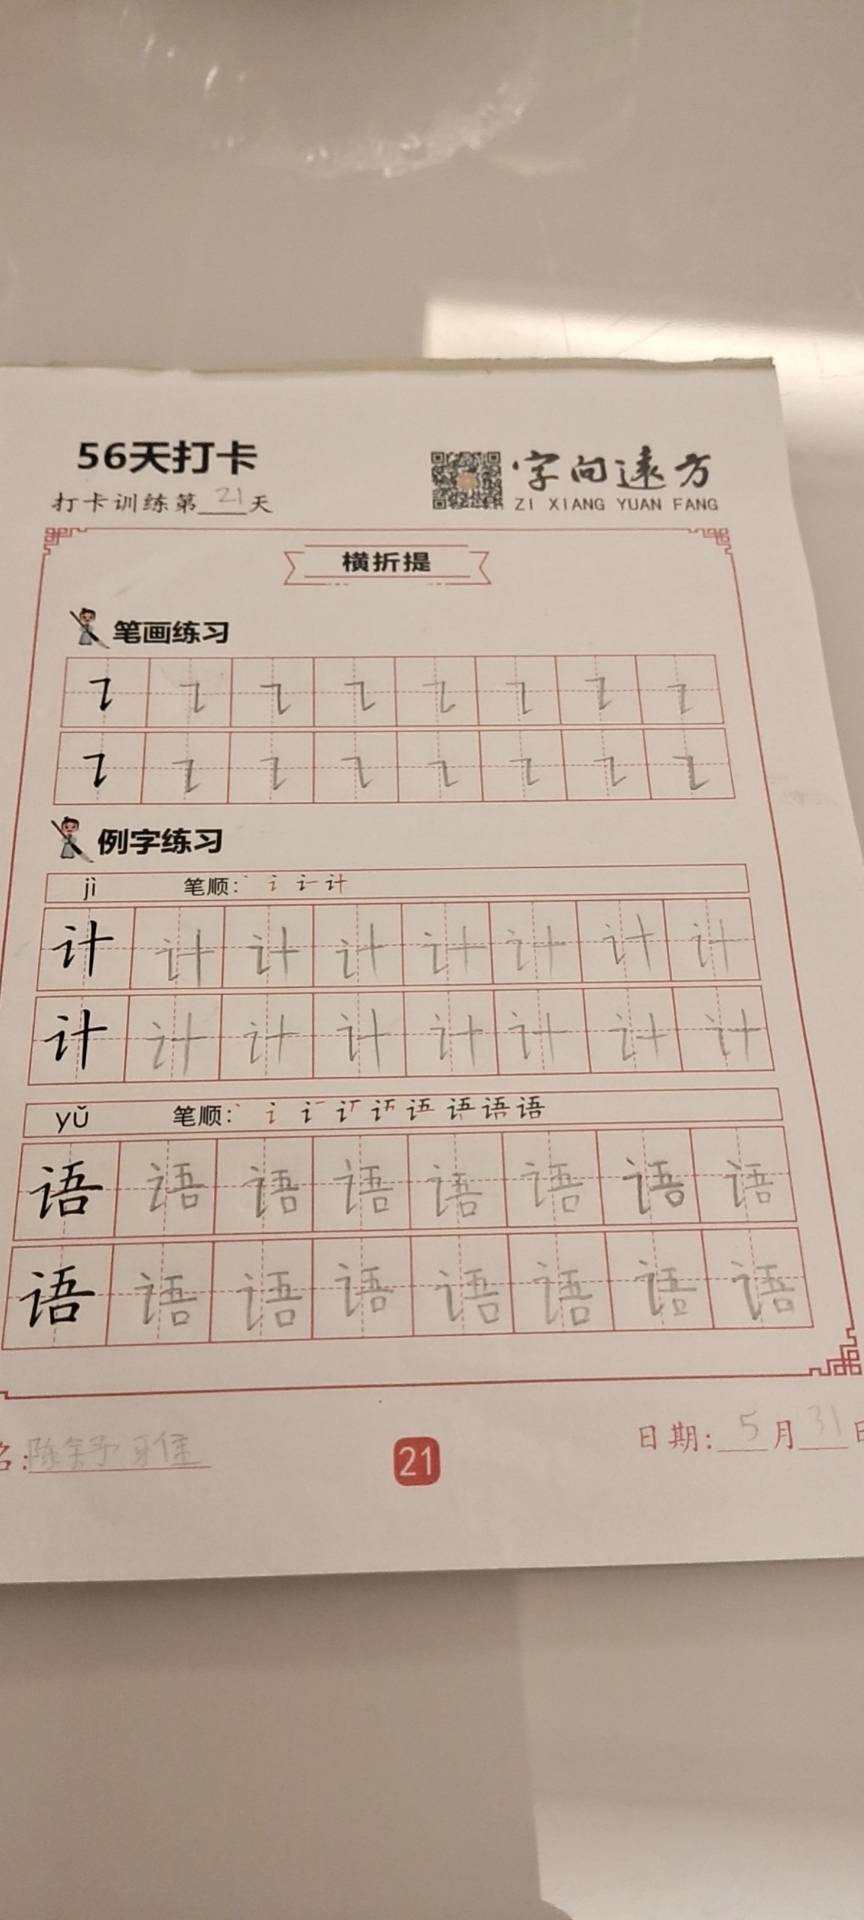 56天打卡
打卡训练第21天
字向远方
ZI XIANG YUAN FANG
横折提
笔画练习
例字练习
jì 笔顺:
计 计 计 计 计 计 计 计
计 计 计 计 计 计 计 计
yǔ 笔顺: 语
语 语 语 语 语 语 语 语
语 语 语 语 语 语 语 语
名: 陈舒雅
21
日期: 5月31日